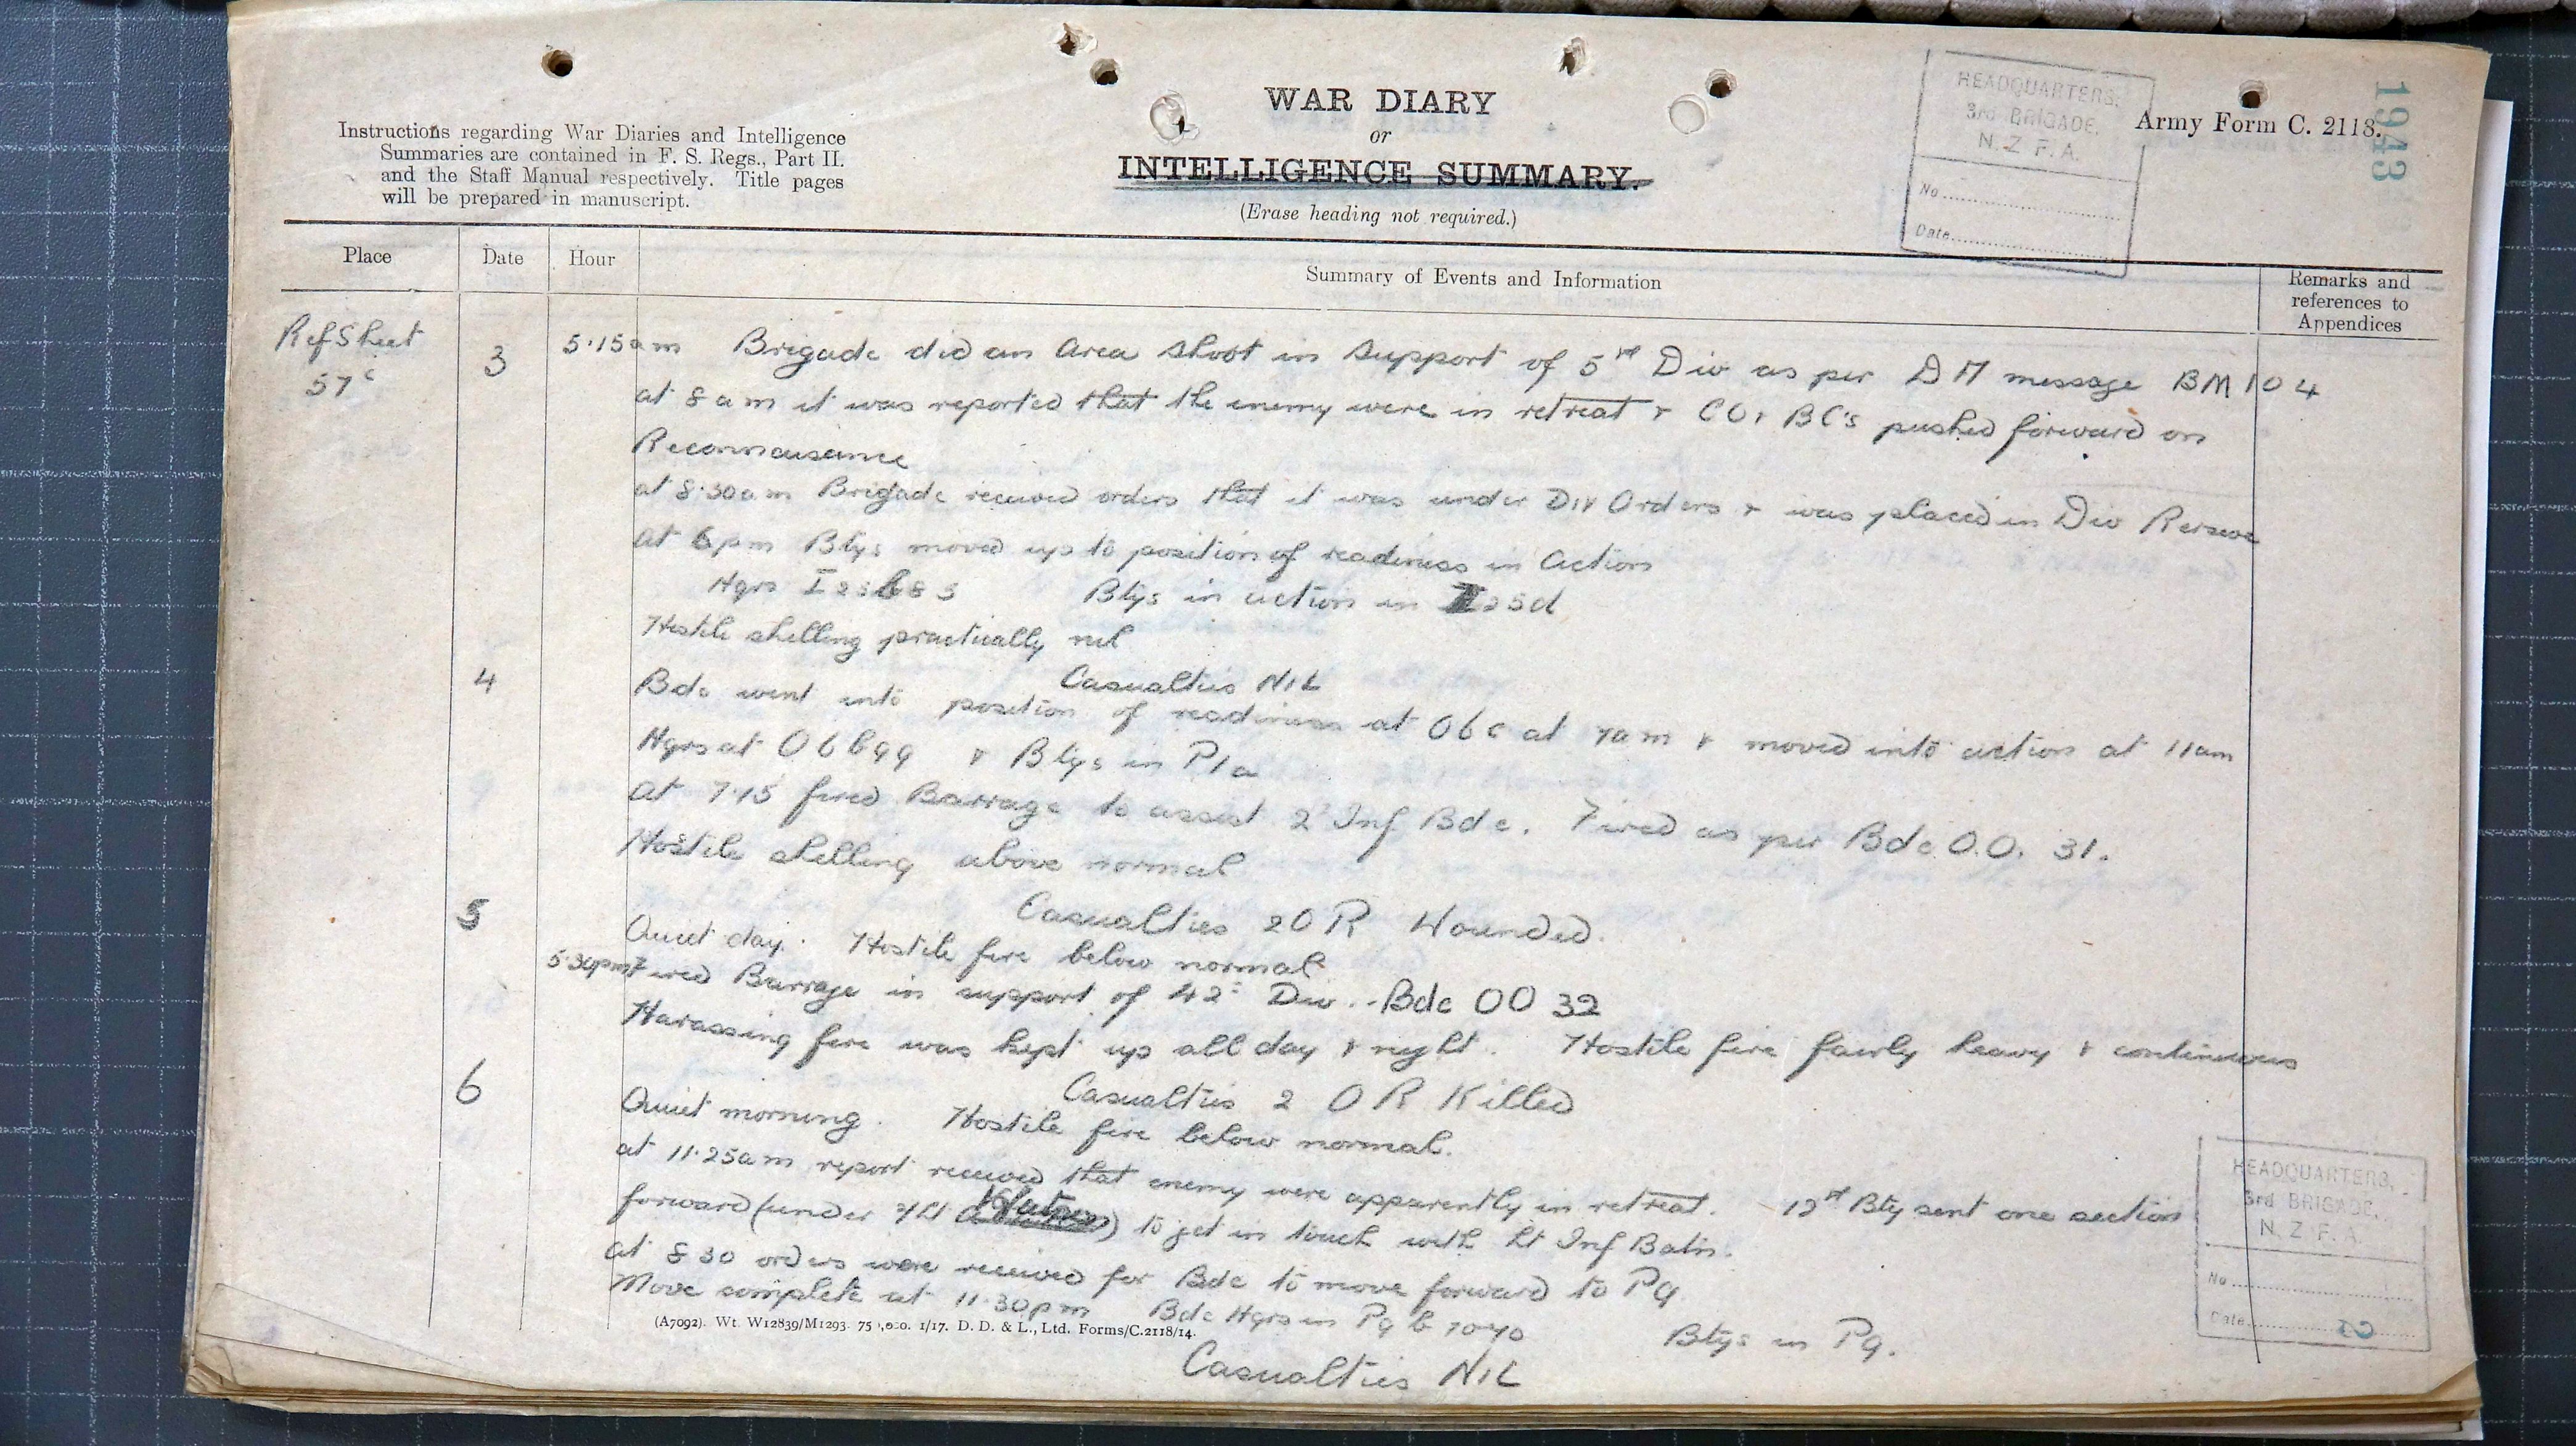 WAR DIARY
or
INTELLIGENCE SUMMARY.
(Erase heading not required.)
Instructions regarding War Diaries and Intelligence
Summaries are contained in F. S. Regs., Part II.
and the Staff Manual respectively. Title pages
will be prepared in manuscript.
HEADQUARTERS,
3rd BRIGADE,
N.Z.F.A.
No
Date
Army Form C. 2118.
1943
Place
Date
Hour
Summary of Events and Information
Remarks and
references to
Appendices
Ref Sheet
57c
3 5.15am Brigade did an Area Shoot in Support of 5th Div as per DM message BM104
at 8am it was reported that the enemy were in retreat & CO & BC's pushed forward on
Reconnaisance
at 8.30am Brigade received orders that it was under Div Orders & was placed in Div Reserve
at 6pm Btys moved up to position of readiness in Action
Hqrs Btys in action in I25d
Hostile shelling practically nil
Casualties NIL
4 Bde went into position of readiness at O6c at 7am & moved into action at 11am
Hqrs at O6b99 & Btys in P1a
at 7.15 fired Barrage to assist 2 Inf Bde. Fired as per Bde O.O. 31.
Hostile shelling above normal
Casualties 2 OR Wounded.
5 Quiet day. Hostile fire below normal
5.30pm Fired Barrage in support of 42 Div. - Bde OO 32
Harassing fire was kept up all day & night. Hostile fire fairly heavy & continuous
Casualties 2 OR Killed
6 Quiet morning. Hostile fire below normal.
at 11.25am report received that enemy were apparently in retreat. 12th Bty sent one section
forward (under to get in touch with Lt Inf Batn.
at 8 30 orders were received for Bde to move forward to P9
Move complete at 11.30pm Bde Hqrs in P9 b 70 70 Btys in P9.
Casualties NIL
(A7092). Wt. W12839/M1293. 75 ,000. 1/17. D. D. & L., Ltd. Forms/C.2118/14.
HEADQUARTERS,
3rd BRIGADE,
N.Z.F.A.
No
Date